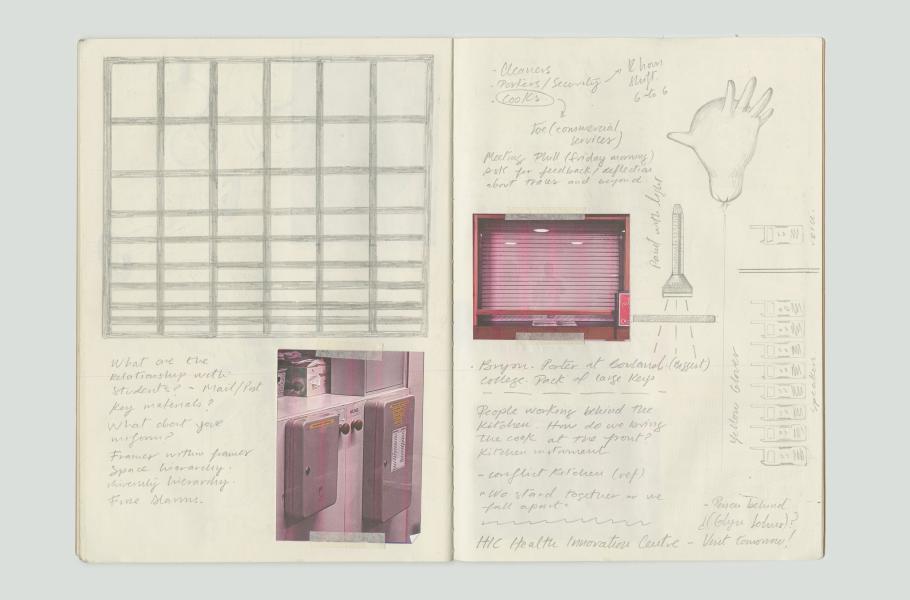 What are the
Relationship with
Students? - Mail/Post
Key materials?
What about your
uniform?
Frames within frames
Space hierarchy.
hierarchy.
Fire Alarms.
- Cleaners
- Porters/Security
12 hours
shift
6 to 6
- Cooks
Joe (commercial
services)
Meeting Phill (friday morning)
Ask for feedback/reflection
about and beyond.
with light
- Bryon. Porter at
college. Pack of large keys
People working behind the
Kitchen. How do we bring
the cook at the front?
Kitchen instrument
- conflict Kitchen (ref)
"We stand together or we
fall apart"
HIC Health Innovation Centre - Visit tomorrow!
Yellow Gloves
speaker
- Person behind